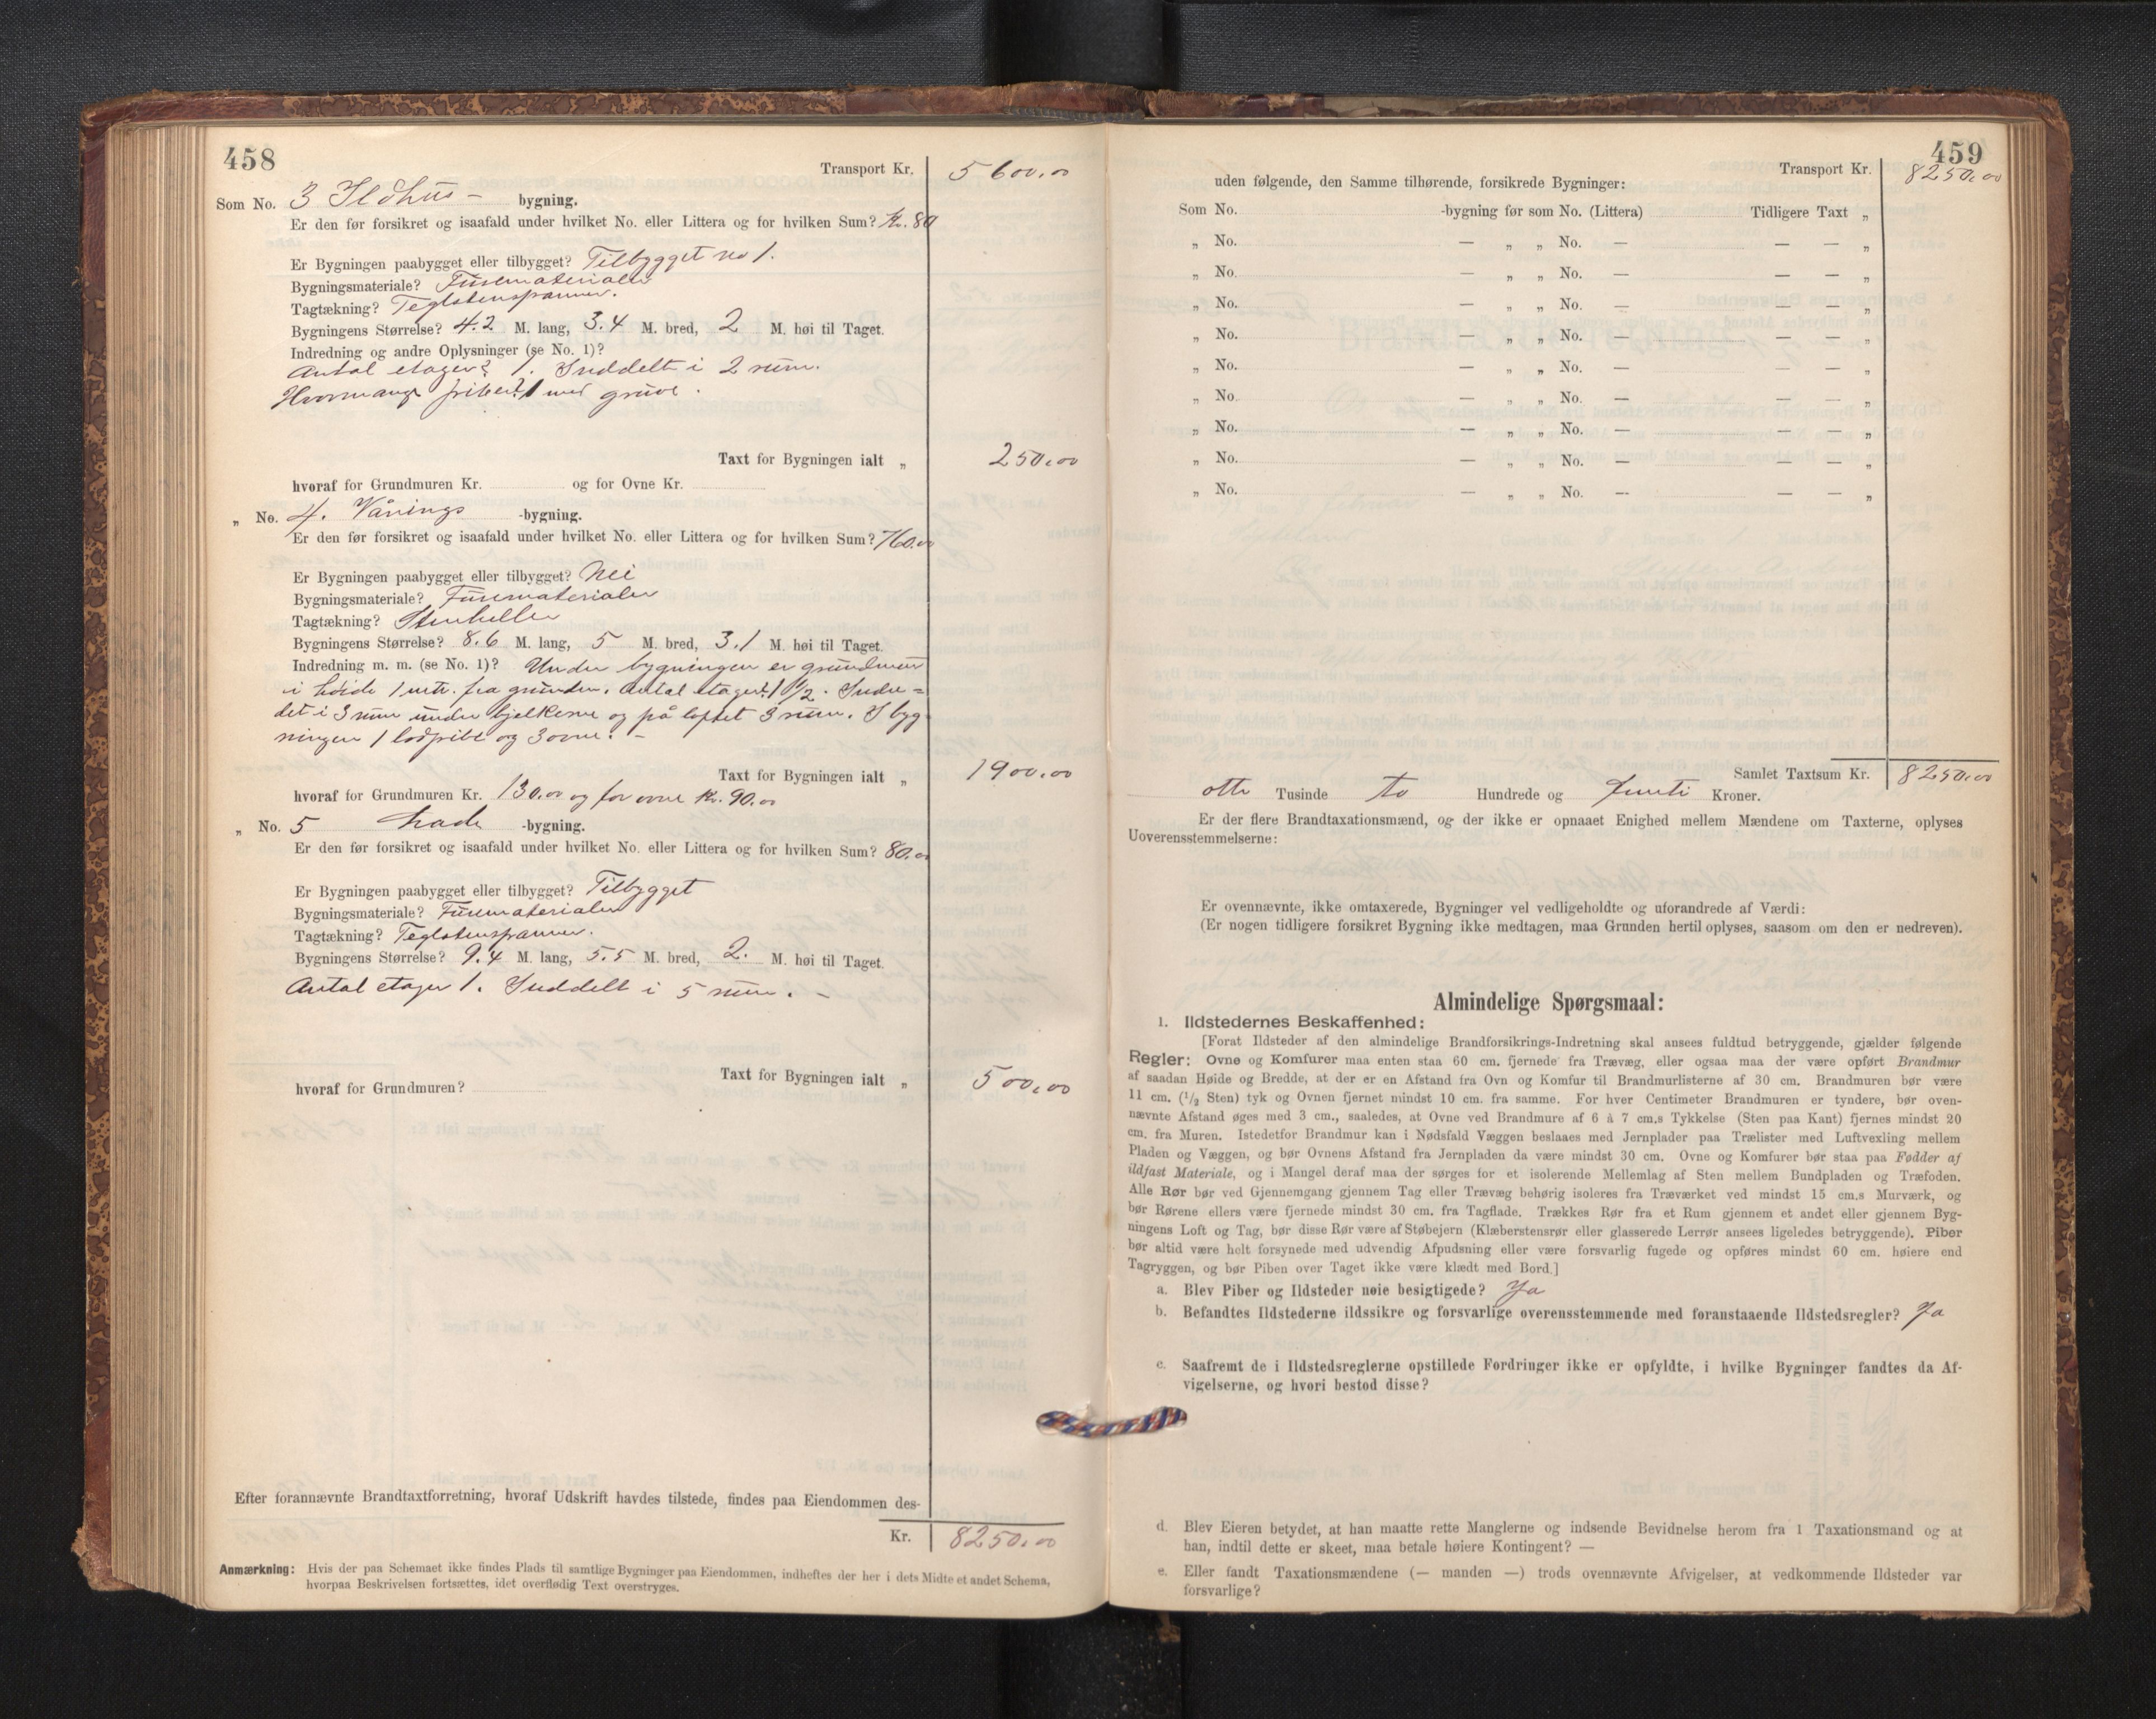 458
Transport Kr. 5600,00
Som No. 3 Ildhus- bygning.
Er den før forsikret og isaafald under hvilket No. eller Littera og for hvilken Sum? Kr. 80
Er Bygningen paabygget eller tilbygget? Tilbygget no 1.
Bygningsmateriale? Furematerialer
Tagtækning? Teglstenspanner.
Bygningens Størrelse? 4.2 M. lang, 3.4 M. bred, 2 M. høi til Taget.
Indredning og andre Oplysninger (se No. 1)?
Antal etager? 1. Inddelt i 2 rum.
Hvormange piber? 1 med grue.
Taxt for Bygningen ialt „ 250,00
hvoraf for Grundmuren Kr. og for Ovne Kr.
„ No. 4. Vånings -bygning.
Er den før forsikret og isaafald under hvilket No. eller Littera og for hvilken Sum? 760.00
Er Bygningen paabygget eller tilbygget? Nei
Bygningsmateriale? Furematerialer
Tagtækning? Stenheller
Bygningens Størrelse? 8.6 M. lang, 5 M. bred, 3.1 M. høi til Taget.
Indredning m. m. (se No. 1)? Under bygningen er grundmur
i høide 1 mtr. fra grunden. Antal etager? 1 1/2. Indde=
det i 3 rum under bjelkerne og på loftet 3 rum. I byg
ningen 1 lodpibe og 3 ovne. -
Taxt for Bygningen ialt „ 1900,00
hvoraf for Grundmuren Kr. 130.00 og for ovne Kr. 90.00
„ No. 5 Lade -bygning.
Er den før forsikret og isaafald under hvilket No. eller Littera og for hvilken Sum? 80.00
Er Bygningen paabygget eller tilbygget? Tilbygget
Bygningsmateriale? Furematerialer
Tagtækning? Teglstenspanner.
Bygningens Størrelse? 9.4 M. lang, 5.5 M. bred, 2. M. høi til Taget.
Antal etager 1. Inddelt i 5 rum. -
Taxt for Bygningen ialt „ 500,00
hvoraf for Grundmuren?
Efter forannævnte Brandtaxtforretning, hvoraf Udskrift havdes tilstede, findes paa Eiendommen des-
Kr. 8250,00
Anmærkning: Hvis der paa Schemaet ikke findes Plads til samtlige Bygninger paa Eiendommen, indheftes der her i dets Midte et andet Schema,
hvorpaa Beskrivelsen fortsættes, idet overflødig Text overstryges.
459
Transport Kr. 8250,00
uden følgende, den Samme tilhørende, forsikrede Bygninger:
Som No. -bygning før som No. (Littera) Tidligere Taxt „
„ No. — „ „ No. — — — „
„ No. — „ „ No. — — — „
„ No. — „ „ No. — — — „
„ No. — „ „ No. — — — „
„ No. — „ „ No. — — — „
„ No. — „ „ No. — — — „
„ No. — „ „ No. — — — „
„ No. — „ „ No. — — — „
„ No. — „ „ No. — — — „
Samlet Taxtsum Kr. 8250,00
otte Tusinde to Hundrede og femti Kroner.
Er der flere Brandtaxationsmænd, og der ikke er opnaaet Enighed mellem Mændene om Taxterne, oplyses
Uoverensstemmelserne:
Er ovennævnte, ikke omtaxerede, Bygninger vel vedligeholdte og uforandrede af Værdi:
(Er nogen tidligere forsikret Bygning ikke medtagen, maa Grunden hertil oplyses, saasom om den er nedreven).
Almindelige Spørgsmaal:
1. Ildstedernes Beskaffenhed:
[Forat Ildsteder af den almindelige Brandforsikrings-Indretning skal ansees fuldtud betryggende, gjælder følgende
Regler: Ovne og Komfurer maa enten staa 60 cm. fjernede fra Trævæg, eller ogsaa maa der være opført Brandmur
af saadan Høide og Bredde, at der er en Afstand fra Ovn og Komfur til Brandmurlisterne af 30 cm. Brandmuren bør være
11 cm. (1/2 Sten) tyk og Ovnen fjernet mindst 10 cm. fra samme. For hver Centimeter Brandmuren er tyndere, bør oven-
nævnte Afstand øges med 3 cm., saaledes, at Ovne ved Brandmure af 6 à 7 cm.s Tykkelse (Sten paa Kant) fjernes mindst 20
cm. fra Muren. Istedetfor Brandmur kan i Nødsfald Væggen beslaaes med Jernplader paa Trælister med Luftvexling mellem
Pladen og Væggen, og bør Ovnens Afstand fra Jernpladen da være mindst 30 cm. Ovne og Komfurer bør staa paa Fødder af
ildfast Materiale, og i Mangel deraf maa der sørges for et isolerende Mellemlag af Sten mellem Bundpladen og Træfoden.
Alle Rør bør ved Gjennemgang gjennem Tag eller Trævæg behørig isoleres fra Træværket ved mindst 15 cm.s Murværk, og
bør Rørene ellers være fjernede mindst 30 cm. fra Tagflade. Trækkes Rør fra et Rum gjennem et andet eller gjennem Byg-
ningens Loft og Tag, bør disse Rør være af Støbejern (Klæberstensrør eller glasserede Lerrør ansees ligeledes betryggende). Piber
bør altid være helt forsynede med udvendig Afpudsning eller være forsvarlig fugede og opføres mindst 60 cm. høiere end
Tagryggen, og bør Piben over Taget ikke være klædt med Bord.]
a. Blev Piber og Ildsteder nøie besigtigede? Ja
b. Befandtes Ildstederne ildssikre og forsvarlige overensstemmende med foranstaaende Ildstedsregler? Ja
c. Saafremt de i Ildstedsreglerne opstillede Fordringer ikke er opfyldte, i hvilke Bygninger fandtes da Af-
vigelserne, og hvori bestod disse?
d. Blev Eieren betydet, at han maatte rette Manglerne og indsende Bevidnelse herom fra 1 Taxationsmand og at
han, indtil dette er skeet, maa betale høiere Kontingent? —
e. Eller fandt Taxationsmændene (— manden —) trods ovennævnte Afvigelser, at vedkommende Ildsteder var
forsvarlige?